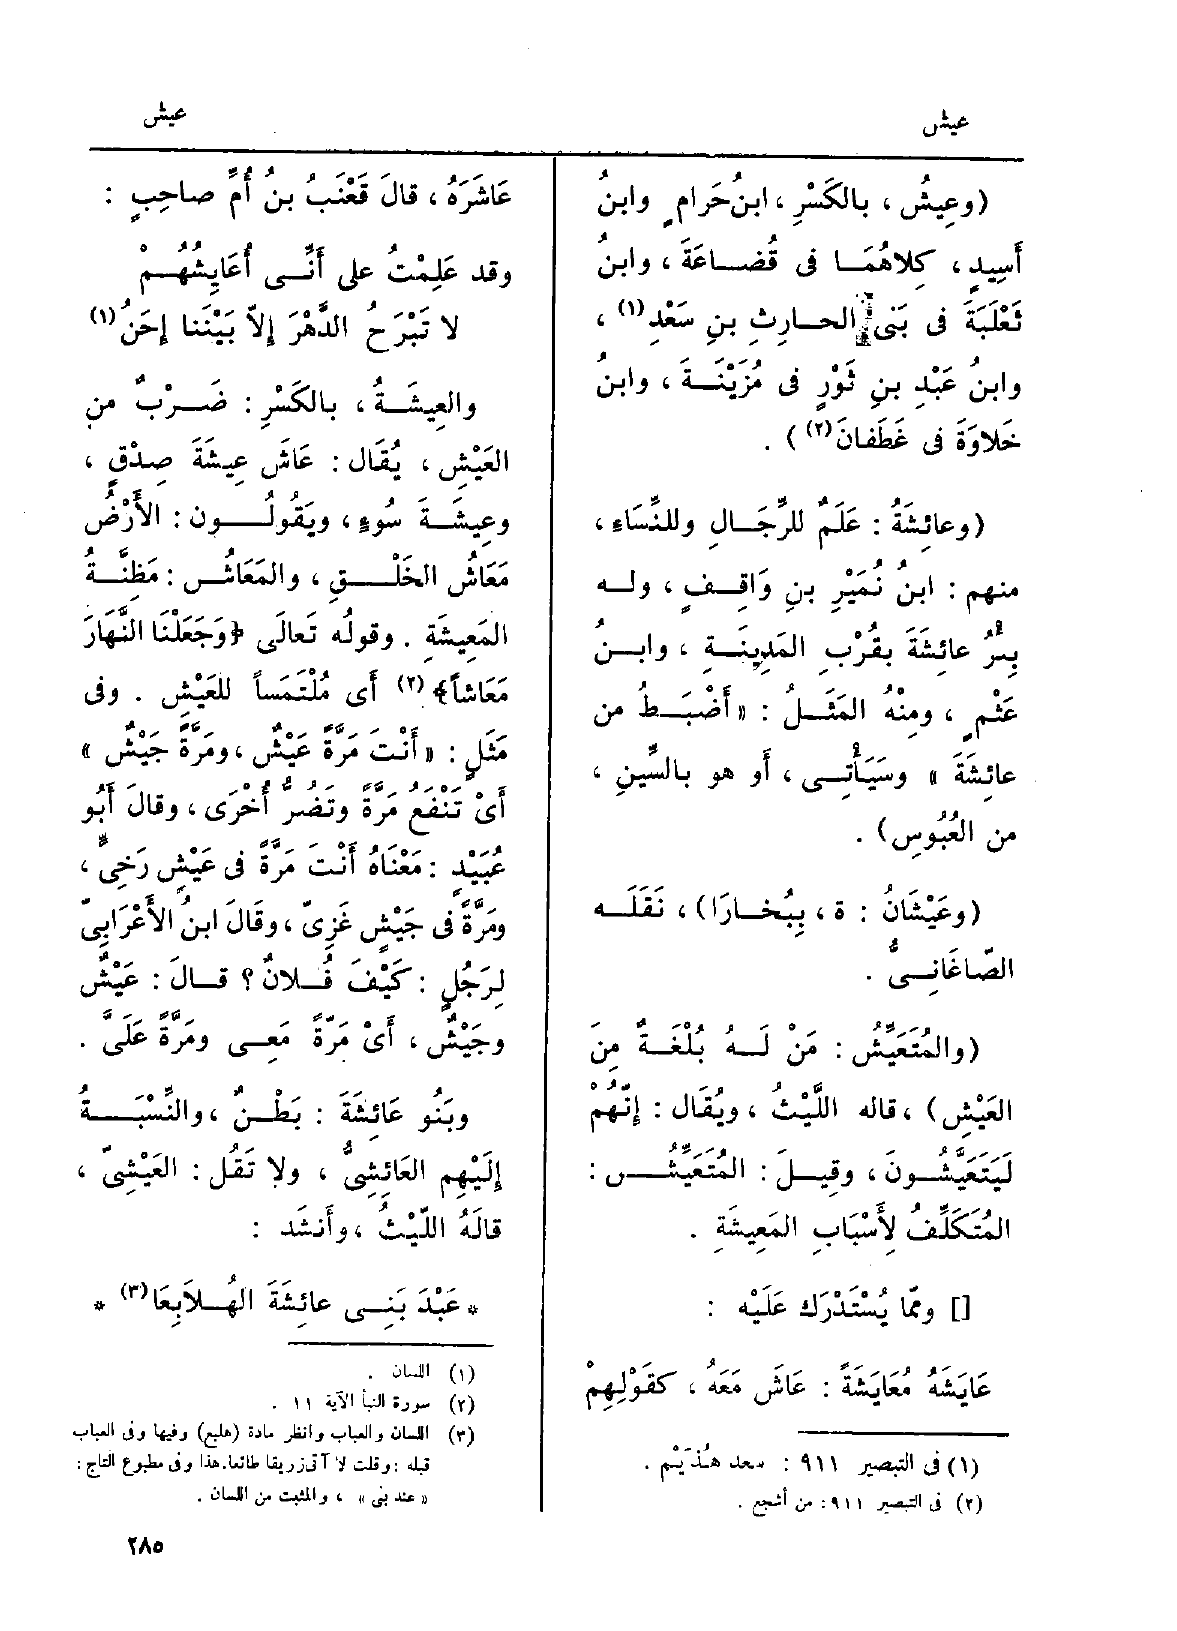 عيش
عيش
(وعِيشُ ، بالكَسْرِ ، ابنُ حَرام ٍ وابنُ
أَسِيدٍ ، كِلاهُمَـا فى قُضـاعَةَ ، وابنُ
ثَعْلَبَةَ فى بَنى الحـارِثِ بنِ سَعْدِ(١) ،
وابنُ عَبْدِ بنِ ثَوْرٍ فى مُزَيْنَـةَ ، وابنُ
خَلاوَةَ فى غَطَفانَ(٢) ) .
(وعائِشَةُ : عَلَمٌ للرِّجَـالِ وللنِّسَاءِ ،
منهم : ابنُ نُمَيْرِ بنِ وَاقِـفٍ ، ولـه
بِئْرُ عائِشَةَ بقُرْبِ المَدِينَـةِ ، وابـنُ
عَثْمٍ ، ومنْهُ المَثَـلُ : «أَضْبَـطُ من
عائِشَةَ » وسَيَأْتِـى ، أَو هو بالسِّينِ ،
من العُبُوسِ) .
(وعَيْشَانُ : ة ، بِبُخـارَا) ، نَقَلَـه
الصّاغَانِـىُّ .
(والمُتَعَيِّشُ : مَنْ لَـهُ بُلْغَـةٌ مِنَ
العَيْشِ) ، قاله اللَّيْثُ ، ويُقَال : إِنَّهُمْ
لَيَتَعَيَّشُـونَ ، وقِيـلَ : المُتَعَيِّـشُ :
المُتَكَلِّفُ لِأَسْبَابِ المَعِيشَةِ .
[] وممّا يُسْتَدْرَك عَلَيْه :
عَايَشَهُ مُعَايَشَةً : عَاشَ مَعَهُ ، كقَوْلِهِمْ
(١) فى التبصير ٩١١ : سعد هُذَيْم .
(٢) فى التبصير ٩١١ : من أشجع .
عَاشَرَهُ ، قالَ قَعْنَبُ بنُ أُمِّ صاحِبٍ :
وقد عَلِمْتُ على أَنِّـى أُعَايِشُهُـمْ
لا تَبْرَحُ الدَّهْرَ إِلاّ بَيْنَنا إِحَنُ(١)
والعِيشَـةُ ، بالكَسْرِ : ضَـرْبٌ من
العَيْشِ ، يُقَال : عَاشَ عِيشَةَ صِدْقٍ ،
وعِيشَـةَ سُوءٍ ، ويَقُولُـون : الأَرْضُ
مَعَاشُ الخَلْـقِ ، والمَعَاشُ : مَظِنَّـةُ
المَعِيشَةِ . وقولُه تَعالَى ﴿وَجَعَلْنَا النَّهَارَ
مَعَاشاً﴾(٢) أَى مُلْتَمَساً للعَيْشِ . وفى
مَثَلٍ : « أَنْتَ مَرَّةً عَيْشٌ ، ومَرَّةً جَيْشٌ »
أَىْ تَنْفَع مَرَّةً وتَضُرّ أُخْرَى ، وقالَ أَبُو
عُبَيْدٍ : مَعْنَاهُ أَنْتَ مَرَّةً فى عَيْشٍ رَخِىٍّ ،
ومَرَّةً فى جَيْشٍ غَزِىّ ، وقَالَ ابنُ الأَعْرَابِىّ
لِرَجُلٍ : كَيْفَ فُـلانٌ ؟ قـالَ : عَيْشٌ
وجَيْشٌ ، أَىْ مَرّةً مَعِـى ومَرَّةً عَلَىَّ .
وبَنُو عَائِشَةَ : بَطْـنٌ ، والنِّسْبَـةُ
إِلَيْهِم العَائِشِىُّ ، ولا تَقُل : العَيْشِىّ ،
قالَهُ اللَّيْثُ ، وأَنشَد :
* عَبْدَ بَنِـى عائِشَةَ الهُـلابِعَا(٣) *
(١) اللسان .
(٢) سورة النبأ الآية ١١ .
(٣) اللسان والعباب وانظر مادة (هلبع) وفيها وفى العباب
قبله : وقلت لا آتى زريقا طائعا. هذا وفى مطبوع التاج :
« عند بنى » ، والمثبت من اللسان .
٢٨٥